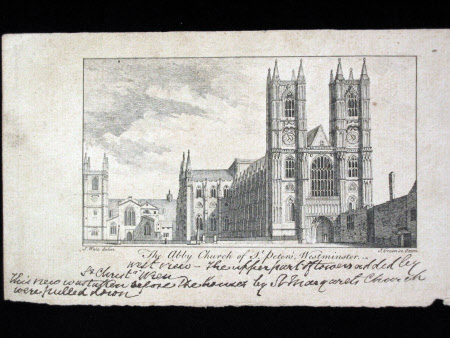 S. Wale delin.
J. Green sc. Oxon.
The Abby Church of St. Peters, Westminster.
West view - The upper part of towers added by
Sr Christr Wren
This view was taken before the houses by St Margarets Church
were pulled down